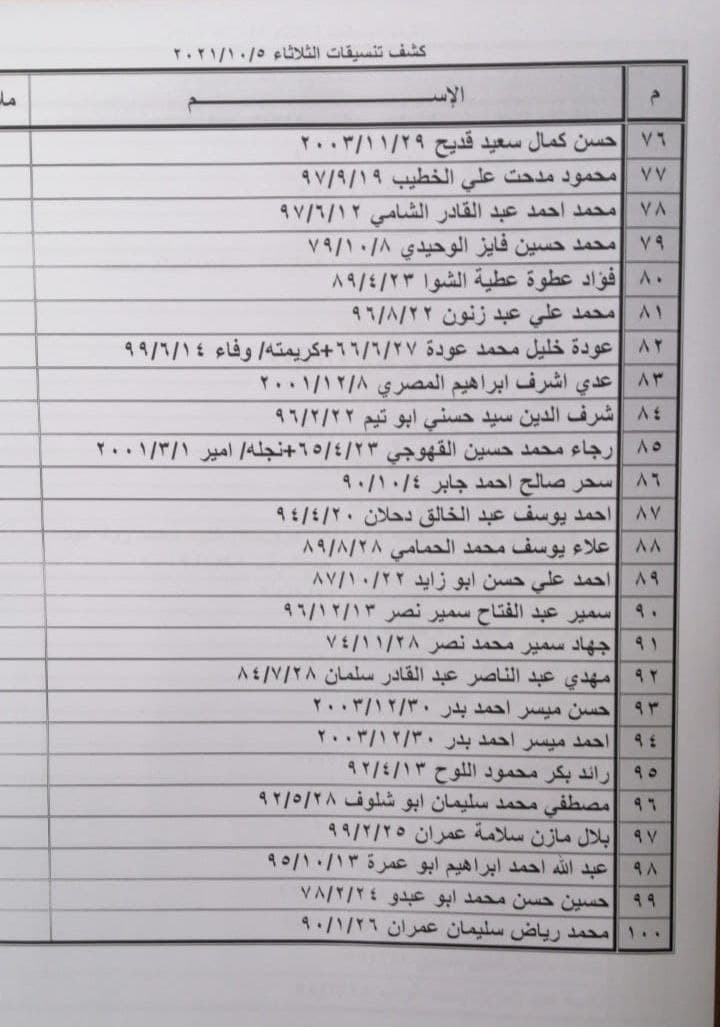 كشف تنسيقات الثلاثاء ٢٠٢١/١٠/٥
م الإســـــــــــــــــــــــم
٧٦ حسن كمال سعيد قديح ٢٠٠٣/١١/٢٩
٧٧ محمود مدحت علي الخطيب ٩٧/٩/١٩
٧٨ محمد احمد عبد القادر الشامي ٩٧/٦/١٢
٧٩ محمد حسين فايز الوحيدي ٧٩/١٠/٨
٨٠ فؤاد عطوة عطية الشوا ٨٩/٤/٢٣
٨١ محمد علي عبد زنون ٩٦/٨/٢٢
٨٢ عودة خليل محمد عودة ٦٦/٦/٢٧+كريمته/ وفاء ٩٩/٦/١٤
٨٣ عدي اشرف ابراهيم المصري ٢٠٠١/١٢/٨
٨٤ شرف الدين سيد حسني ابو تيم ٩٦/٢/٢٢
٨٥ رجاء محمد حسين القهوجي ٦٥/٤/٢٣+نجله/ امير ٢٠٠١/٣/١
٨٦ سحر صالح احمد جابر ٩٠/١٠/٤
٨٧ احمد يوسف عبد الخالق دحلان ٩٤/٤/٢٠
٨٨ علاء يوسف محمد الحمامي ٨٩/٨/٢٨
٨٩ احمد علي حسن ابو زايد ٨٧/١٠/٢٢
٩٠ سمير عبد الفتاح سمير نصر ٩٦/١٢/١٣
٩١ جهاد سمير محمد نصر ٧٤/١١/٢٨
٩٢ مهدي عبد الناصر عبد القادر سلمان ٨٤/٧/٢٨
٩٣ حسن ميسر احمد بدر ٢٠٠٣/١٢/٣٠
٩٤ احمد ميسر احمد بدر ٢٠٠٣/١٢/٣٠
٩٥ رائد بكر محمود اللوح ٩٢/٤/١٣
٩٦ مصطفي محمد سليمان ابو شلوف ٩٢/٥/٢٨
٩٧ بلال مازن سلامة عمران ٩٩/٢/٢٥
٩٨ عبد الله احمد ابراهيم ابو عمرة ٩٥/١٠/١٣
٩٩ حسين حسن محمد ابو عبدو ٧٨/٢/٢٤
١٠٠ محمد رياض سليمان عمران ٩٠/١/٢٦